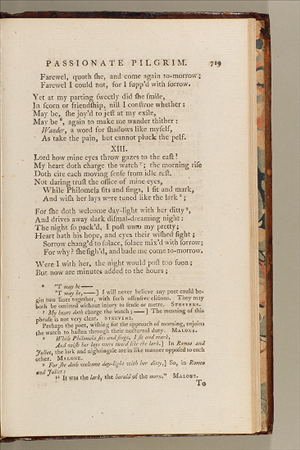 PASSIONATE PILGRIM. 719
Farewel, quoth ſhe, and come again to-morrow;
Farewel I could not, for I ſupp'd with ſorrow.
Yet at my parting ſweetly did ſhe ſmile,
In ſcorn or friendſhip, nill I conſtrue whether:
May be, ſhe joy'd to jeſt at my exile,
May be ⁸, again to make me wander thither:
Wander, a word for ſhadows like myſelf,
As take the pain, but cannot pluck the pelf.
XIII.
Lord how mine eyes throw gazes to the eaſt!
My heart doth charge the watch ⁹; the morning riſe
Doth cite each moving ſenſe from idle reſt.
Not daring truſt the office of mine eyes,
While Philomela ſits and ſings, I ſit and mark,
And wiſh her lays were tuned like the lark ¹;
For ſhe doth welcome day-light with her ditty ²,
And drives away dark diſmal-dreaming night:
The night ſo pack'd, I poſt unto my pretty;
Heart hath his hope, and eyes their wiſhed ſight;
Sorrow chang'd to ſolace, ſolace mix'd with ſorrow;
For why? ſhe ſigh'd, and bade me come to-morrow.
Were I with her, the night would poſt too ſoon;
But now are minutes added to the hours;
"T may be —
"T may be, —] I will never believe any poet could be-
gin two lines together, with ſuch offenſive eliſions. They may
both be omitted without injury to ſenſe or metre. STEEVENS.
My heart doth charge the watch;—] The meaning of this
phraſe is not very clear. STEEVENS.
Perhaps the poet, wiſhing for the approach of morning, enjoins
the watch to haſten through their nocturnal duty. MALONE.
While Philomela ſits and ſings, I ſit and mark,
And wiſh her lays were tuned like the lark.] In Romeo and
Juliet, the lark and nightingale are in like manner oppoſed to each
other. MALONE.
For ſhe doth welcome day-light with her ditty,] So, in Romeo
and Juliet:
"It was the lark, the herald of the morn." MALONE.
To